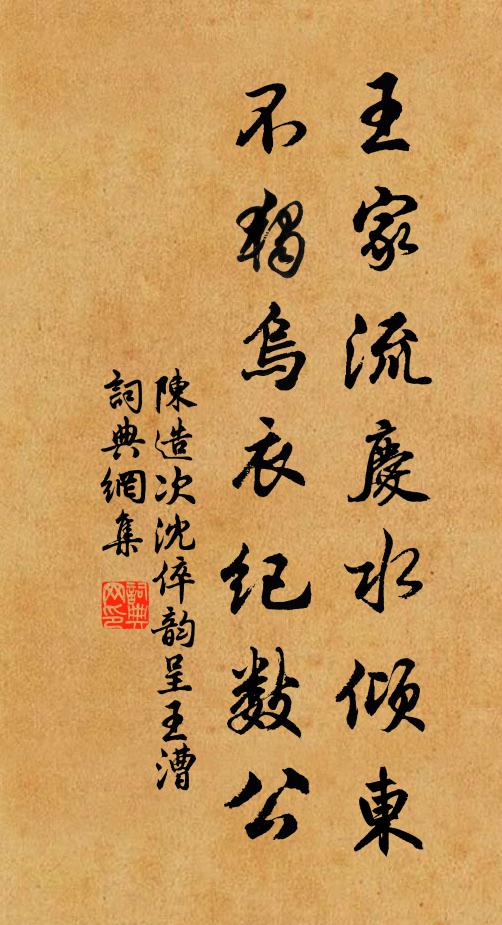 王家流慶水傾東
不獨烏衣紀數公
陳造次沈倅韵呈王漕
詞典網集
詞典網印